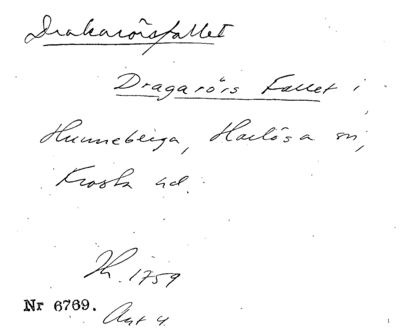 Drakarörsfallet
Dragarörs Fallet i
Hunneberga, Harlösa sn,
Frosta hd.
Nr 6769.